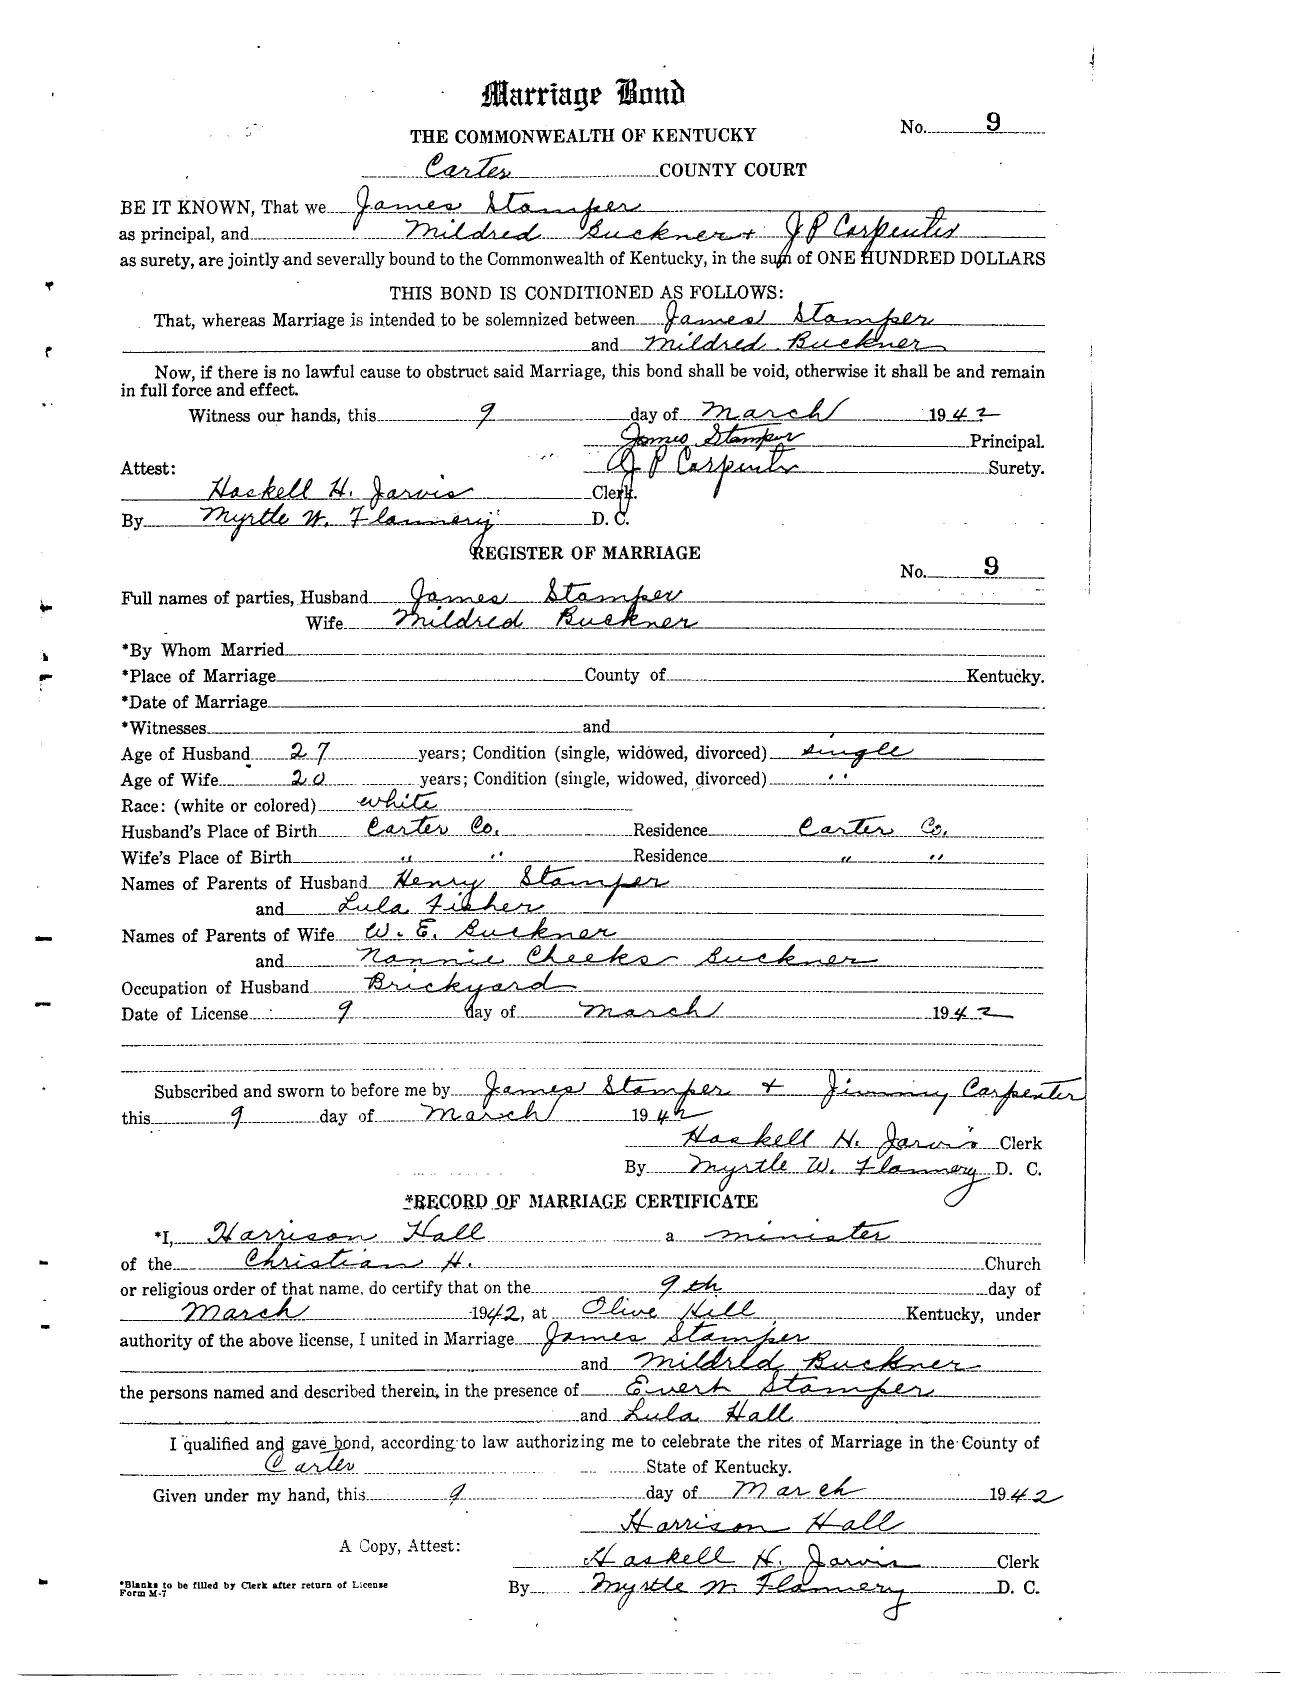 Marriage Bond
THE COMMONWEALTH OF KENTUCKY No. 9
Carter COUNTY COURT
BE IT KNOWN, That we James Stamper
as principal, and Mildred Buckner + J P Carpenter
as surety, are jointly and severally bound to the Commonwealth of Kentucky, in the sum of ONE HUNDRED DOLLARS
THIS BOND IS CONDITIONED AS FOLLOWS:
That, whereas Marriage is intended to be solemnized between James Stamper
and Mildred Buckner
Now, if there is no lawful cause to obstruct said Marriage, this bond shall be void, otherwise it shall be and remain
in full force and effect.
Witness our hands, this 9 day of March 1942
James Stamper Principal.
Attest: J P Carpenter Surety.
Haskell H. Jarvis Clerk.
By Myrtle W. Flannery D. C.
REGISTER OF MARRIAGE
No. 9
Full names of parties, Husband James Stamper
Wife Mildred Buckner
*By Whom Married
*Place of Marriage County of Kentucky.
*Date of Marriage
*Witnesses and
Age of Husband 27 years; Condition (single, widowed, divorced) single
Age of Wife 20 years; Condition (single, widowed, divorced) ''
Race: (white or colored) white
Husband's Place of Birth Carter Co. Residence Carter Co.
Wife's Place of Birth " " Residence " "
Names of Parents of Husband Henry Stamper
and Lula Fisher
Names of Parents of Wife W. E. Buckner
and Nannie Cheeks Buckner
Occupation of Husband Brickyard
Date of License 9 day of March 1942
Subscribed and sworn to before me by James Stamper + Jimmy Carpenter
this 9 day of March 1942
Haskell H. Jarvis Clerk
By Myrtle W. Flannery D. C.
*RECORD OF MARRIAGE CERTIFICATE
*I, Harrison Hall a minister
of the Christian H. Church
or religious order of that name, do certify that on the 9th day of
March 1942, at Olive Hill Kentucky, under
authority of the above license, I united in Marriage James Stamper
and Mildred Buckner
the persons named and described therein, in the presence of Evert Stamper
and Lula Hall
I qualified and gave bond, according to law authorizing me to celebrate the rites of Marriage in the County of
Carter State of Kentucky.
Given under my hand, this 9 day of March 1942
Harrison Hall
A Copy, Attest:
Haskell H. Jarvis Clerk
*Blanks to be filled by Clerk after return of License
Form M-7
By Myrtle W. Flannery D. C.